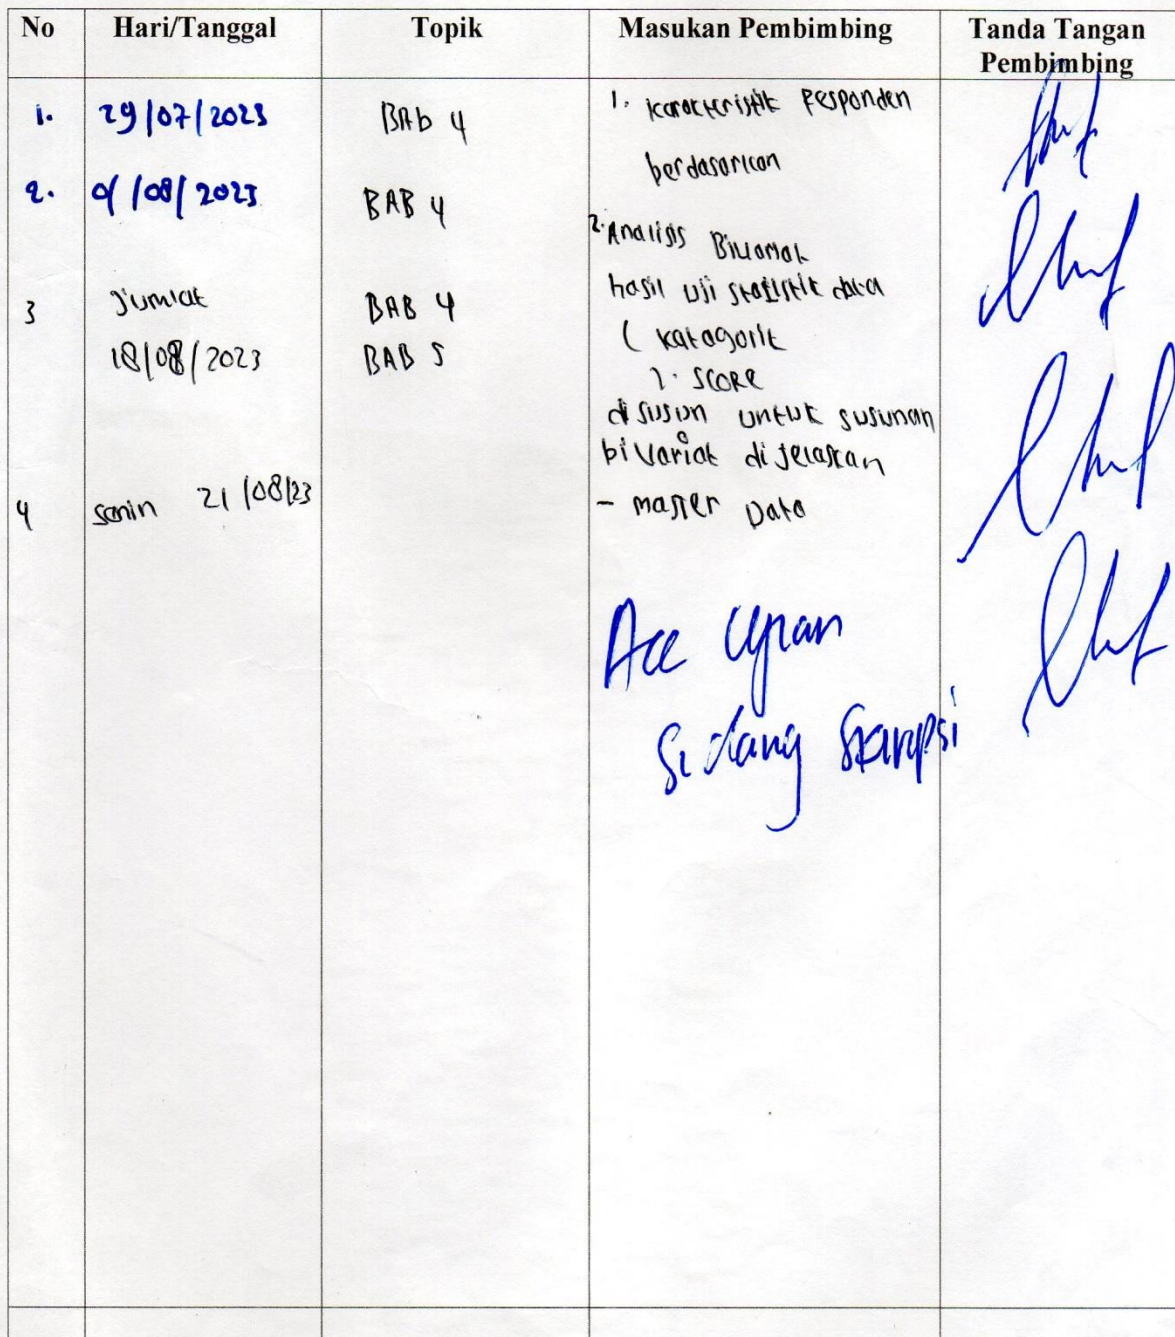 No Hari/Tanggal Topik Masukan Pembimbing Tanda Tangan Pembimbing
1. 29/07/2023 BAb 4 1. karakteristik Responden
berdasarkan
2. 01/08/2023 BAB 4 2. Analisis Bivariat
3 Jumat BAB 4 hasil uji statistik data
18/08/2023 BAB 5 ( katagorik
2. SCORE
di susun untuk susunan
bivariat di jelaskan
4 senin 21/08/23 - master Data
Acc Ujian
Sidang Skripsi